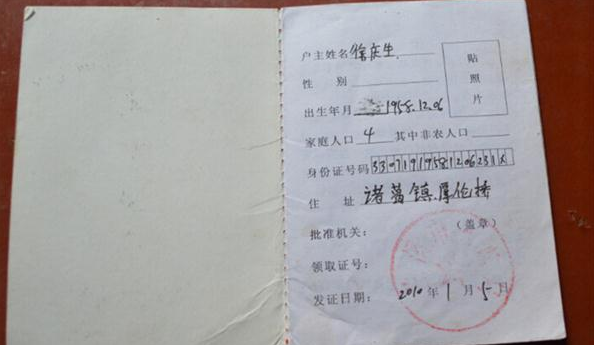 户主姓名 徐庆生
贴照片
性 别
出生年月 1958.12.06
家庭人口 4 其中非农人口
身份证号码
住 址 诸葛镇厚伦桥
批准机关： （盖章）
领取证号：
发证日期： 2010年1月5日